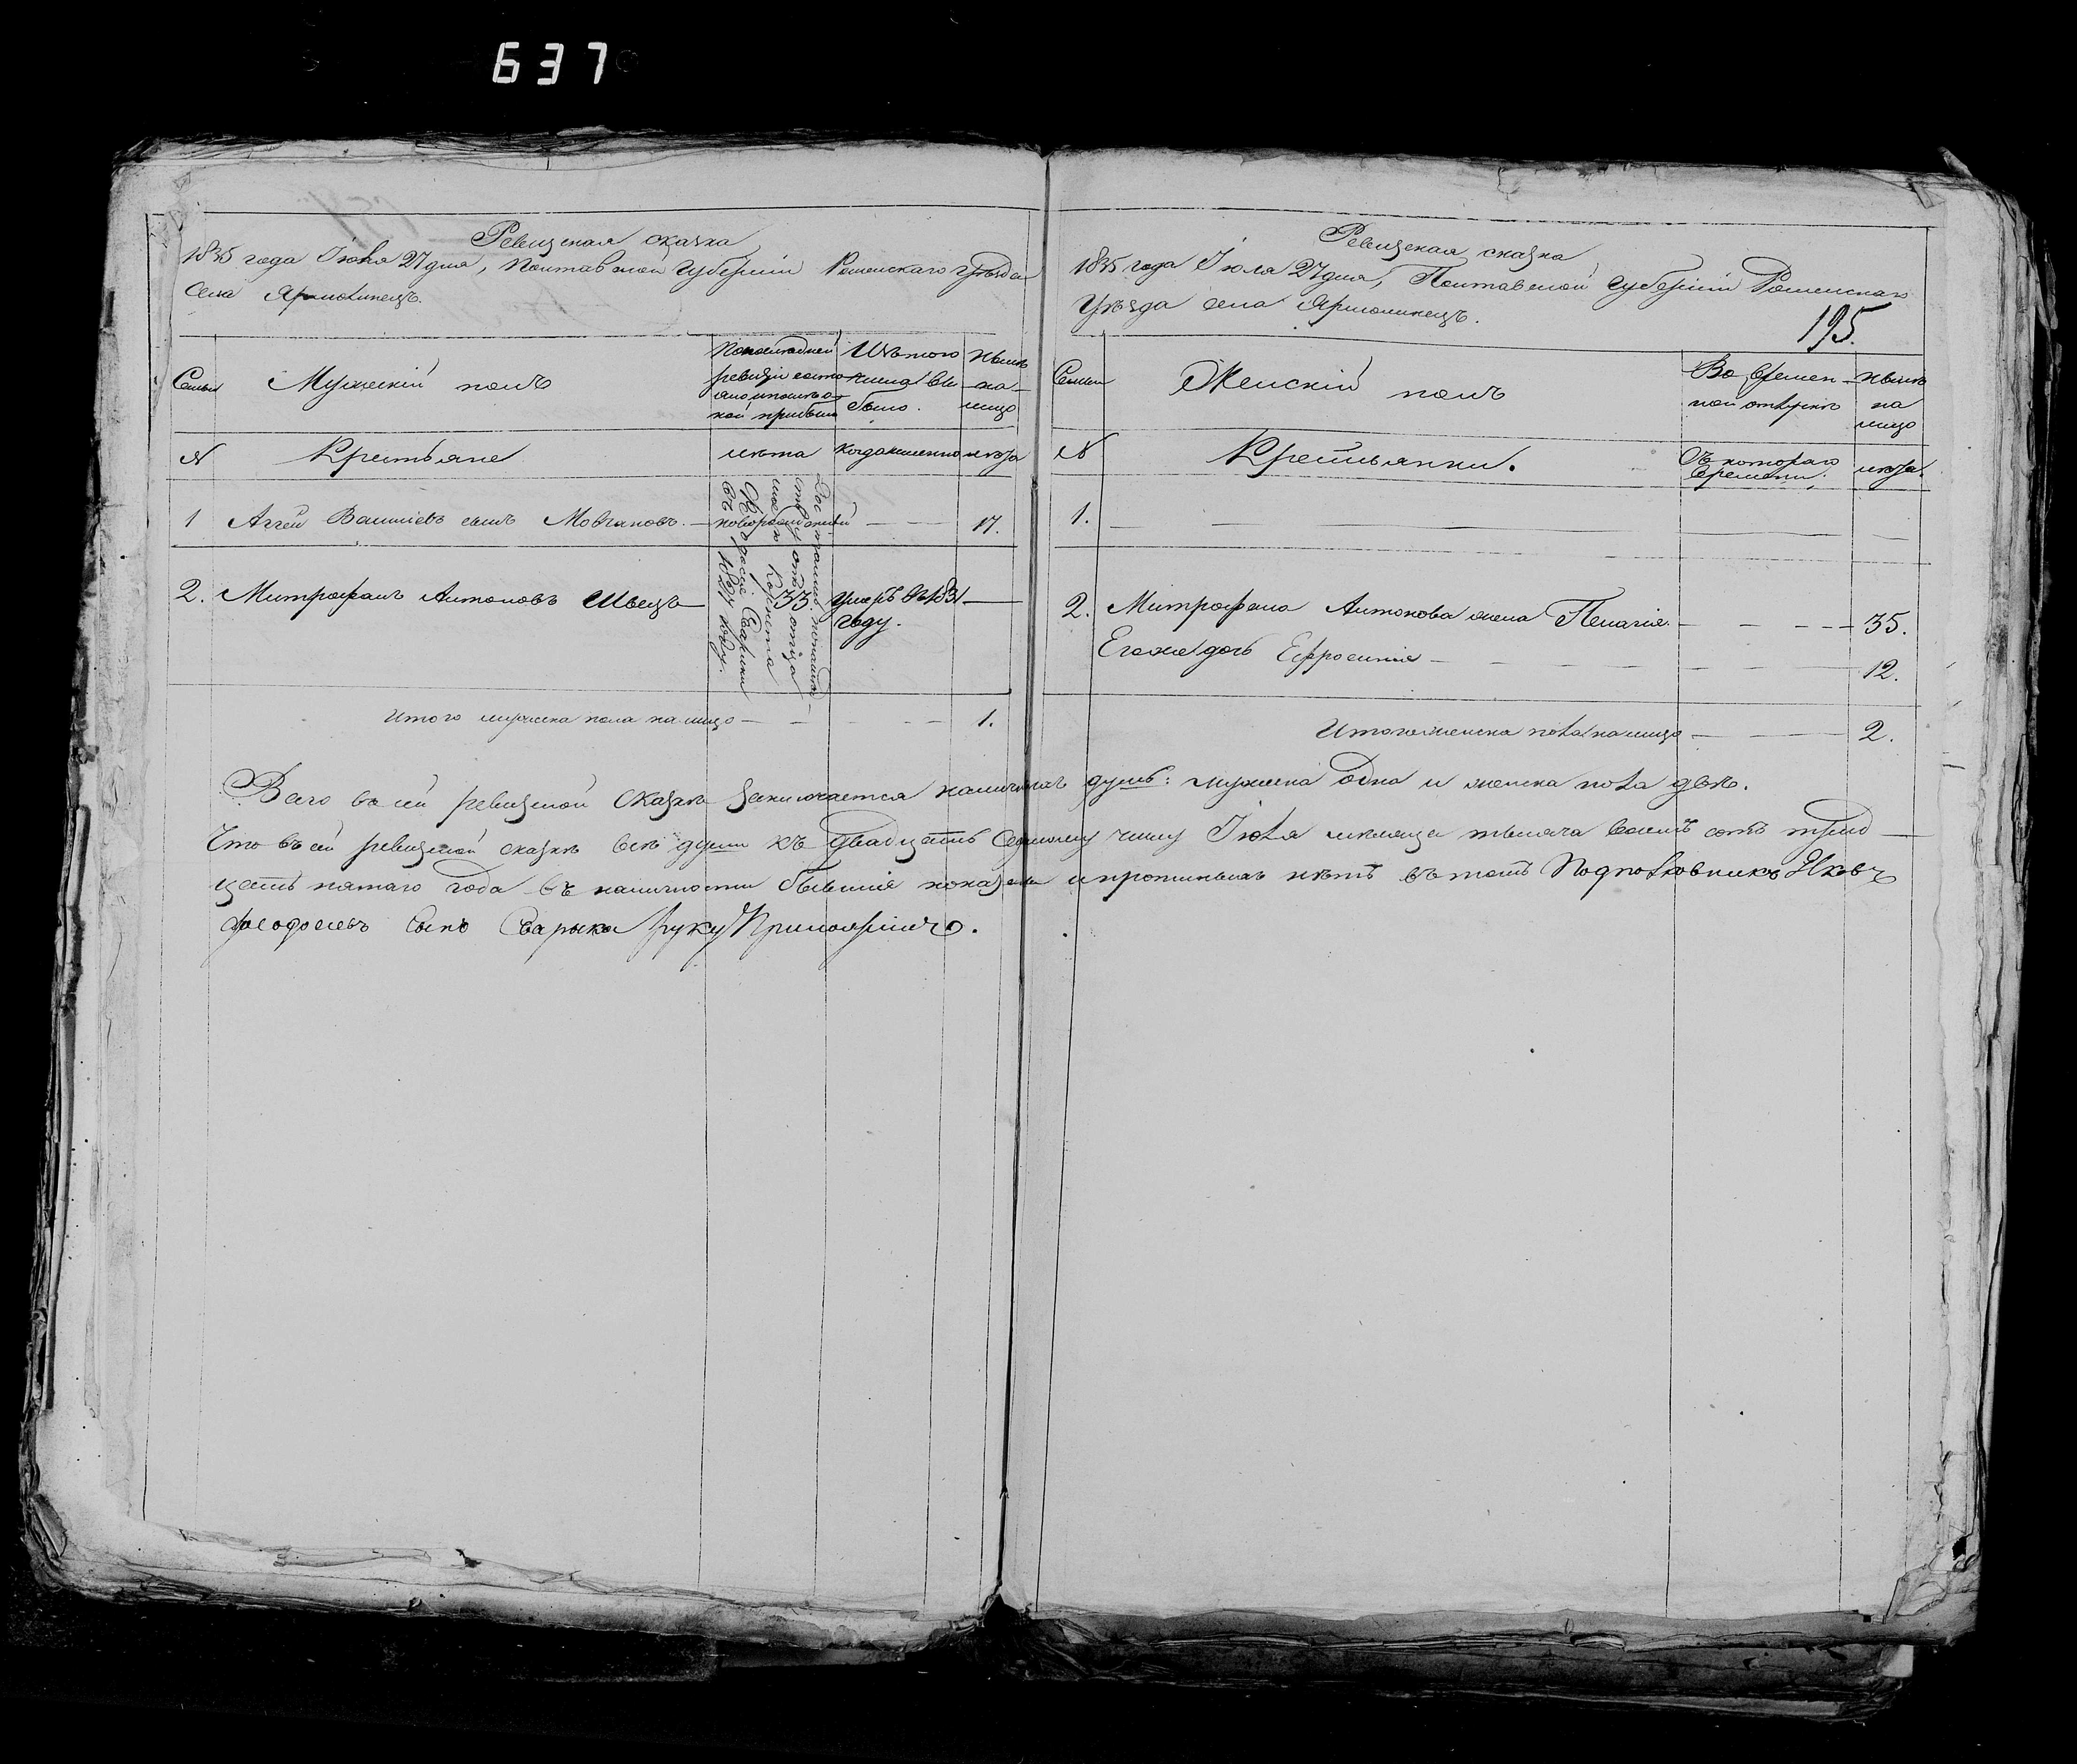 637
Ревизская сказка
1835 года Іюля 27 дня, Полтавской Губерніи Роменскаго Уѣзда
Села Ярмолинецъ.
Семьи
Мужескій полъ
По последней ревизіи состояло и послѣ оной прибыло
Изъ того числа выбыло.
Нынѣ на лицо
№
Крестьяне
лѣта
когда именно
лѣта
1 Аггей Васильевъ сынъ Мовчановъ. — новорожденный — — 17.
2. Митрофанъ Антоновъ Швецъ — 33. умеръ въ 1831 — году.
въ 1827 году.
Итого мужеска пола на лицо — — — — 1.
Ревизская сказка
1835 года Іюля 27 дня, Полтавской Губерніи Роменскаго
Уѣзда села Ярмолинецъ.
195.
Семьи
Женскій полъ
Во временной отлучкѣ
Нынѣ на лицо
№
Крестьянки.
Съ котораго времени.
лѣта.
1. — — —
2. Митрофана Антонова жена Пелагія — — — — 35.
Его же дочь Ефросинія — — — — 12.
Итого женска пола на лицо — — 2.
Всего въ сей ревизской сказкѣ заключается наличныхъ душъ: мужска одна и женска пола двѣ.
Что въ сей ревизской сказкѣ всѣ души къ двадцать седьмому числу Іюля мѣсяца тысяча восемь сотъ трид—
цать пятаго года въ наличности бывшія показаны и прописныхъ нѣтъ въ томъ Подполковникъ Яковъ
Федосіевъ сынъ Сварыка руку Приложилъ.